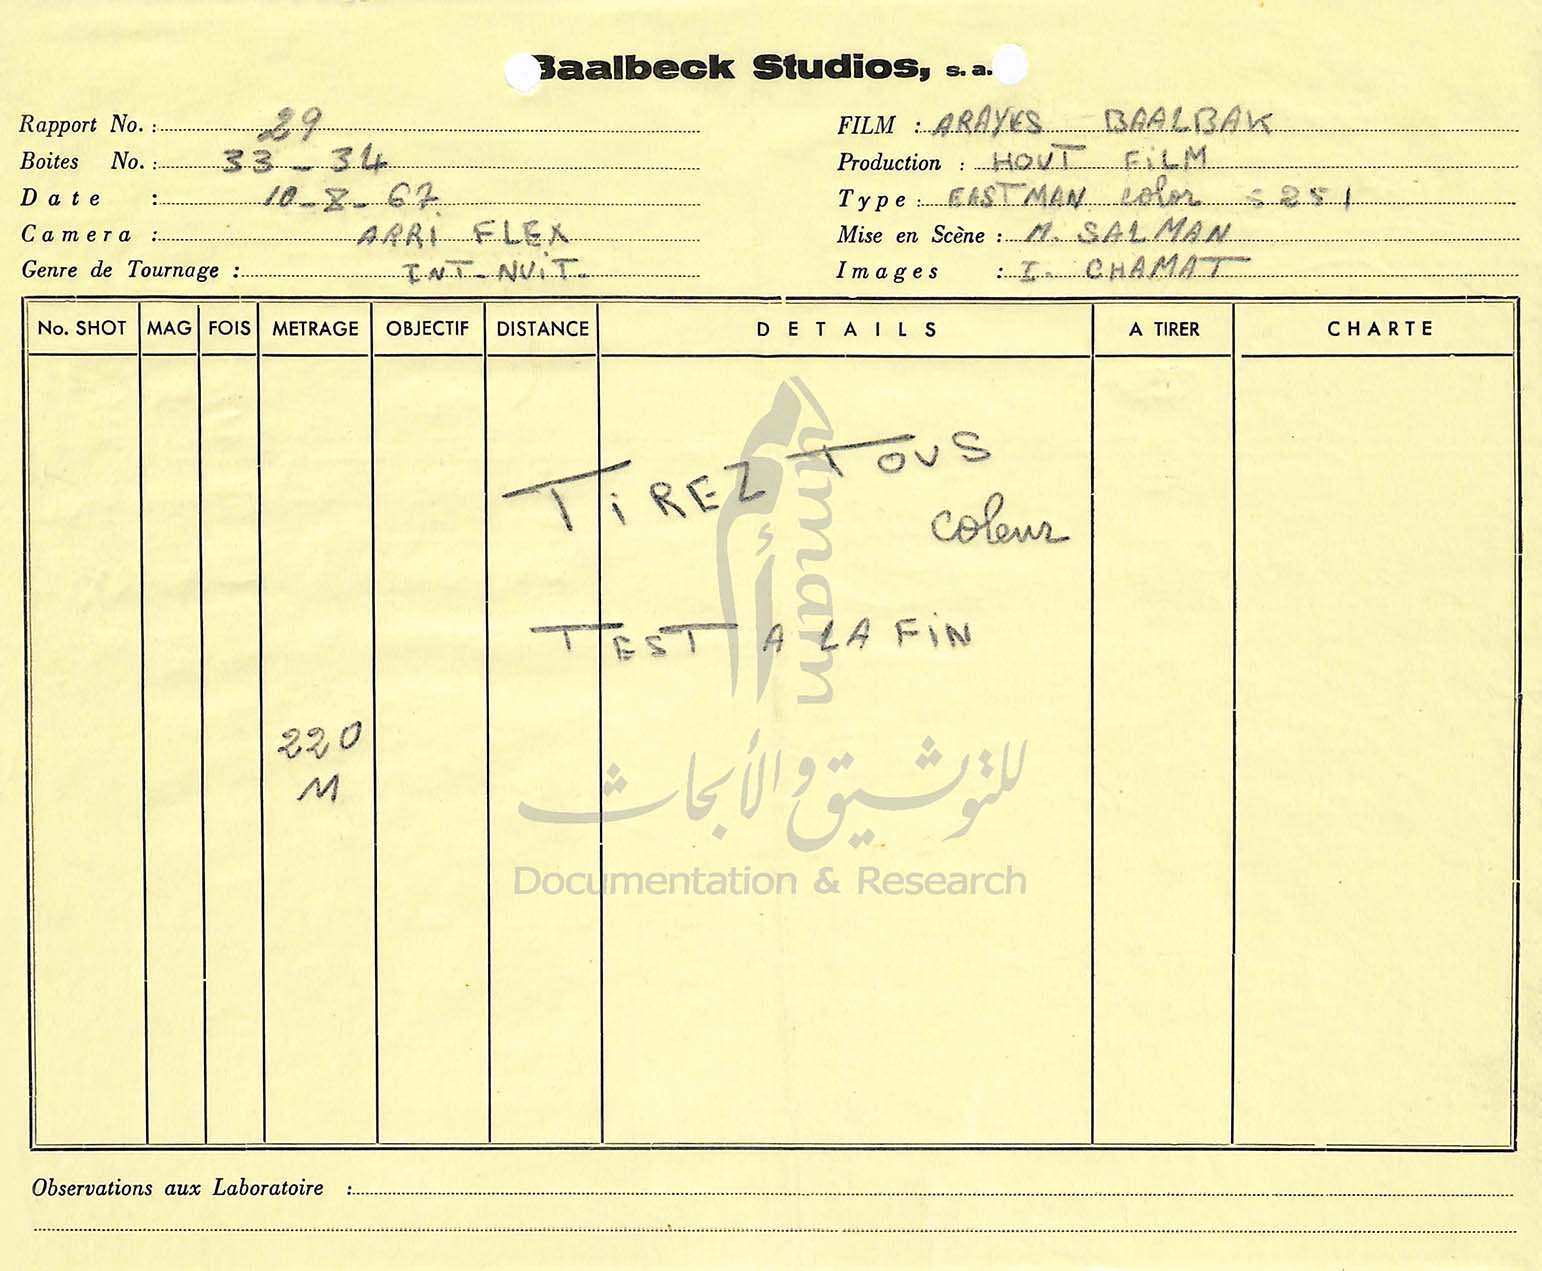 Baalbeck Studios, s. a.
Rapport No. : 29
Boites No. : 33 - 34
Date : 10-8-67
Camera : ARRI FLEX
Genre de Tournage : INT-NUIT-
FILM : ARAYES BAALBAK
Production : HOUT FILM
Type : EASTMAN Color 5251
Mise en Scène : M. SALMAN
Images : I. CHAMAT
No. SHOT MAG FOIS METRAGE OBJECTIF DISTANCE DETAILS A TIRER CHARTE
TIREZ TOUS
Coleur
TEST A LA FIN
220
M
أمم
umam
للتوثيق والأبحاث
Documentation & Research
Observations aux Laboratoire :